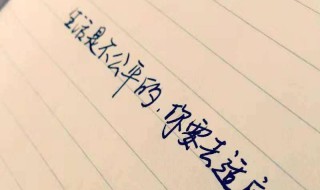 生活是不公平的，你要去适应